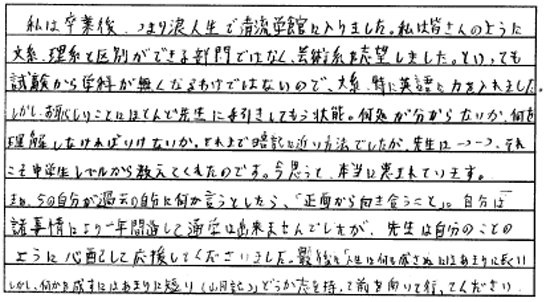 私は卒業後、つまり浪人生で清流学館に入りました。私は皆さんのように
文系、理系と区別ができる部門ではなく、芸術系を志望しました。といっても
試験から学科が無くなるわけではないので、文系、特に英語に力を入れました。
しかしお恥しいことにほとんど先生に手引きしてもらう状態。何処が分からないか、何を
理解しなければいけないか。それまで暗記に近い方法でしたが、先生は一つ一つ、それ
こそ中学生レベルから教えてくれたのです。今思うと、本当に恵まれています。
もし今の自分が過去の自分に何か言うとしたら、「正面から向き合うこと」。自分は
諸事情により一年間通して通学は出来ませんでしたが、先生は自分のことの
ように心配して応援してくださいました。最後に「人生は何も成さぬにはあまりに長い
しかし、何かを成すにはあまりに短い（山月記）」どうか志を持って前を向いて行ってください。